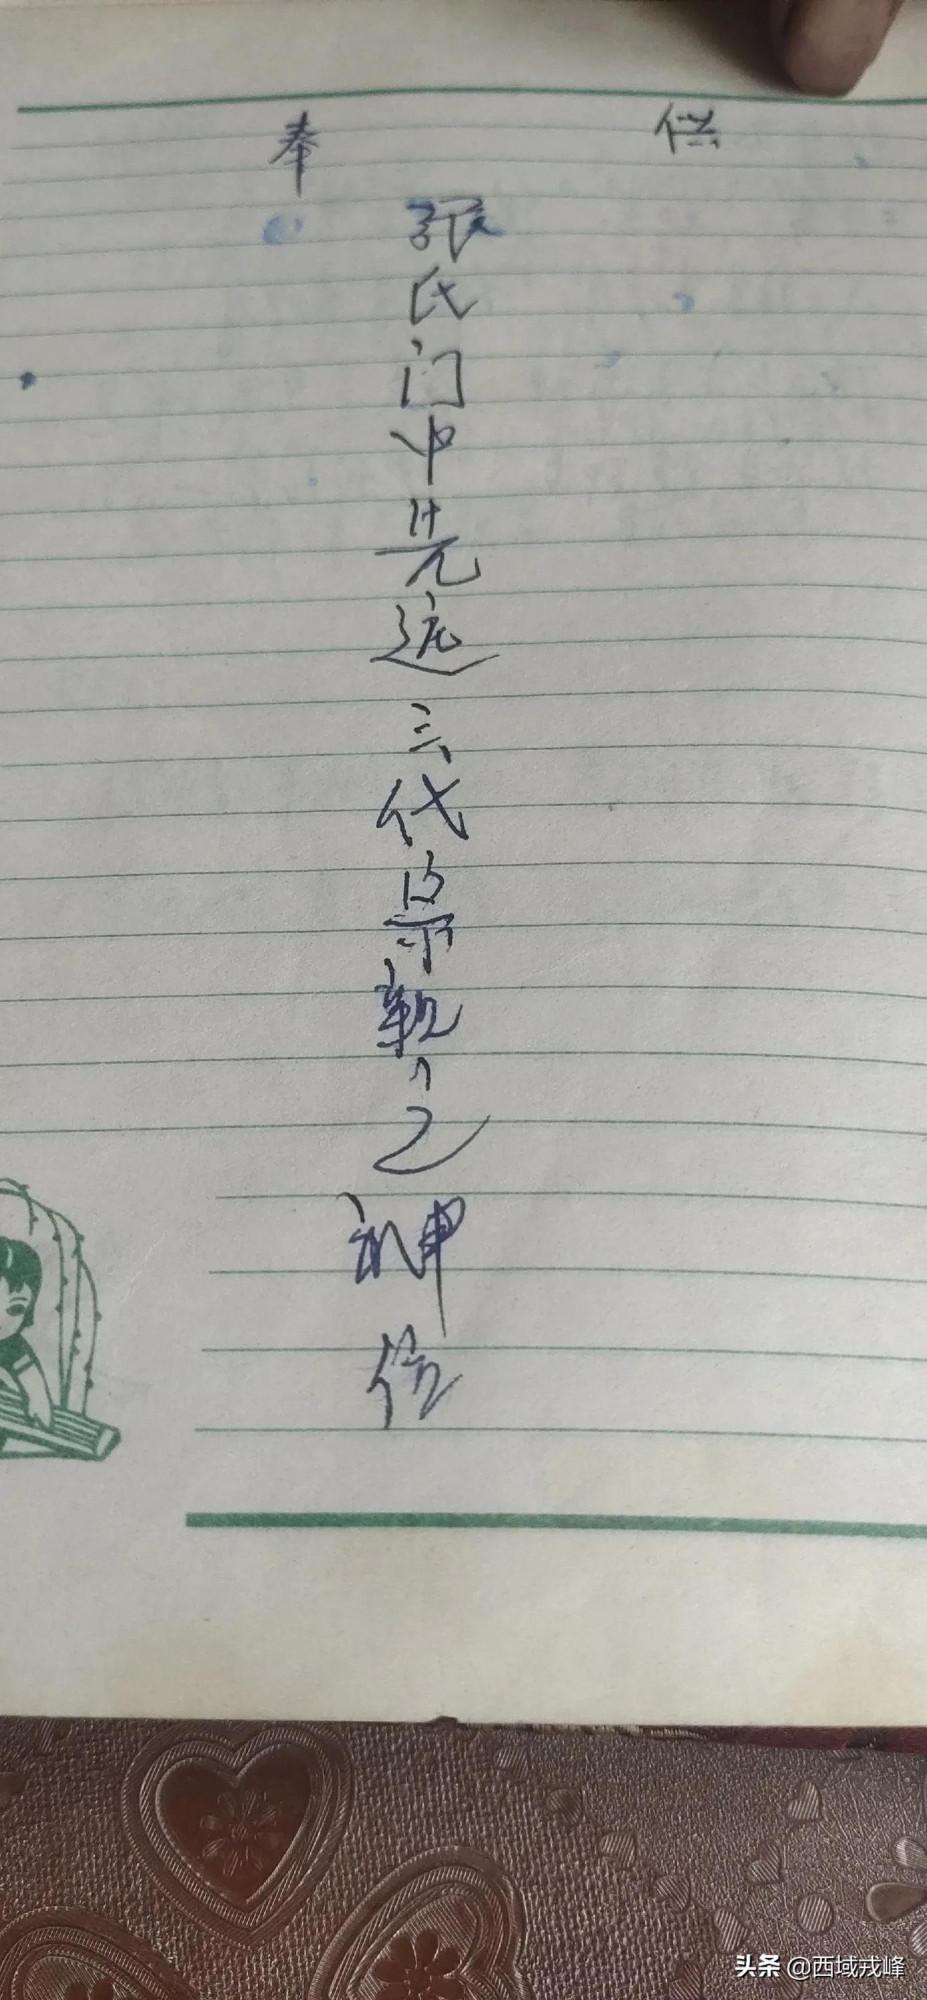 奉 供
张氏门中先远三代宗亲之神位
头条 @西域戎峰